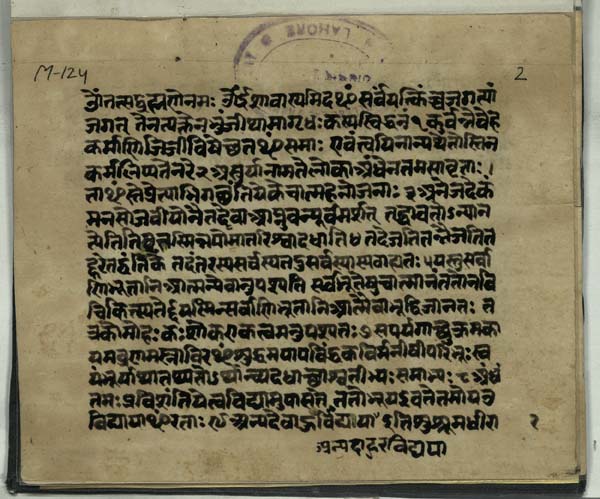 M-124
2
LAHORE
ॐतत्सद्ब्रह्मणेनमः ॐईशावास्यमिदꣳसर्वंयत्किञ्चजगत्यां
जगत् तेनत्यक्तेनभुंजीथामागृधः कस्यस्विद्धनं १ कुर्वन्नेवेह
कर्माणिजिजीविषेच्छतꣳसमाः एवंत्वयिनान्यथेतोस्तिन
कर्मलिप्यतेनरे २ असुर्यानामतेलोकाअंधेनतमसावृताः ।
ताꣳस्तेप्रेत्याभिगच्छंतियेकेचात्महनोजनाः ३ अनेजदेकं
मनसोजवीयोनैनद्देवाआप्नुवन्पूर्वमर्शत् तद्धावतोऽन्यान
त्येतितिष्ठत्तस्मिन्नपोमातरिश्वादधाति ४ तदेजतितन्नैजतित
द्दूरेतद्वंतिके तदंतरस्यसर्वस्यतदुसर्वस्यास्यबाह्यतः ५ यस्तुसर्वा
णिभूतानिआत्मन्येवानुपश्यति सर्वभूतेषुचात्मानंततोनवि
चिकित्सति ६ यस्मिन्सर्वाणिभूतानिआत्मैवाभूद्विजानतः त
त्रकोमोहः कःशोकएकत्वमनुपश्यतः ७ सपर्यगाच्छुक्रमका
यमव्रणमस्नाविरꣳशुद्धमपापविद्धंकविर्मनीषीपरिभूःस्व
यंभूर्याथातथ्यतोऽर्थान्व्यदधाच्छाश्वतीभ्यःसमाभ्यः ८ अंधं
तमःप्रविशंतियेत्वविद्यामुपासते ततोभूयइवतेतमोयउ
विद्यायाꣳरताः ९ अन्यदेवाहुर्विद्याया इतिशुश्रुमधीरा
२
अन्यदाहुरविद्यया